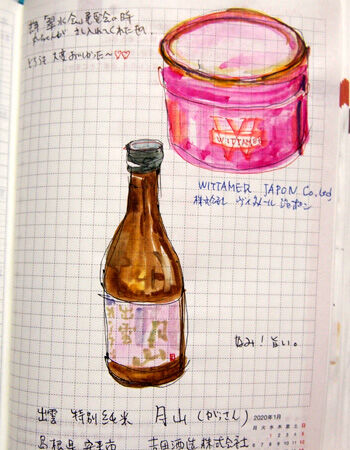 翠水会展覧会の時
さし入れてくれた
大変おいしかった〜♡♡
WITTAMER
WITTAMER JAPON Co., Ltd
株式会社 ヴィタメール ジャポン
出雲
月山
好み！旨い。
出雲 特別純米 月山（がっさん）
島根県 安来市 吉田酒造株式会社
2020年1月
月 火 水 木 金 土 日